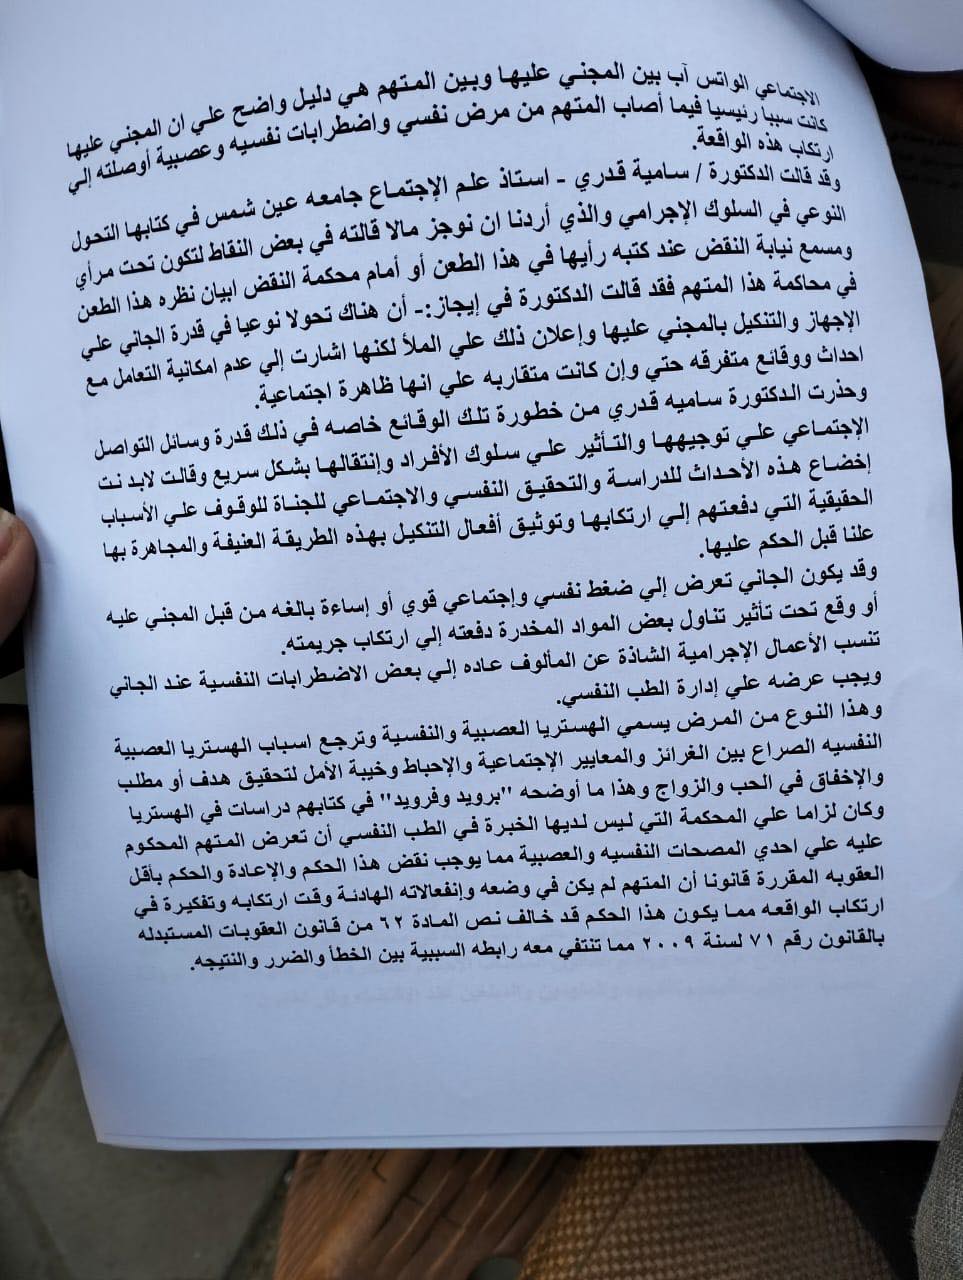 الاجتماعي الواتس آب بين المجني عليها وبين المتهم هي دليل واضح علي ان المجني عليها
كانت سببا رئيسيا فيما أصاب المتهم من مرض نفسي واضطرابات نفسيه وعصبية أوصلته إلي
ارتكاب هذه الواقعة.
وقد قالت الدكتورة / سامية قدري - استاذ علم الإجتماع جامعه عين شمس في كتابها التحول
النوعي في السلوك الإجرامي والذي أردنا ان نوجز مالا قالته في بعض النقاط لتكون تحت مرأي
ومسمع نيابة النقض عند كتبه رأيها في هذا الطعن أو أمام محكمة النقض ابيان نظره هذا الطعن
في محاكمة هذا المتهم فقد قالت الدكتورة في إيجاز:- أن هناك تحولا نوعيا في قدرة الجاني علي
الإجهاز والتنكيل بالمجني عليها وإعلان ذلك علي الملأ لكنها اشارت إلي عدم امكانية التعامل مع
احداث ووقائع متفرقه حتي وإن كانت متقاربه علي انها ظاهرة اجتماعية.
وحذرت الدكتورة ساميه قدري من خطورة تلك الوقائع خاصه في ذلك قدرة وسائل التواصل
الإجتماعي علي توجيهها والتأثير علي سلوك الأفراد وإنتقالها بشكل سريع وقالت لابد نت
إخضاع هذه الأحداث للدراسة والتحقيق النفسي والاجتماعي للجناة للوقوف علي الأسباب
الحقيقية التي دفعتهم إلي ارتكابها وتوثيق أفعال التنكيل بهذه الطريقة العنيفة والمجاهرة بها
علنا قبل الحكم عليها.
وقد يكون الجاني تعرض إلي ضغط نفسي وإجتماعي قوي أو إساءة بالغه من قبل المجني عليه
أو وقع تحت تأثير تناول بعض المواد المخدرة دفعته إلي ارتكاب جريمته.
تنسب الأعمال الإجرامية الشاذة عن المألوف عاده إلي بعض الاضطرابات النفسية عند الجاني
ويجب عرضه علي إدارة الطب النفسي.
وهذا النوع من المرض يسمي الهستريا العصبية والنفسية وترجع اسباب الهستريا العصبية
النفسيه الصراع بين الغرائز والمعايير الإجتماعية والإحباط وخيبة الأمل لتحقيق هدف أو مطلب
والإخفاق في الحب والزواج وهذا ما أوضحه "برويد وفرويد" في كتابهم دراسات في الهستريا
وكان لزاما علي المحكمة التي ليس لديها الخبرة في الطب النفسي أن تعرض المتهم المحكوم
عليه علي احدي المصحات النفسيه والعصبية مما يوجب نقض هذا الحكم والإعادة والحكم بأقل
العقوبه المقررة قانونا أن المتهم لم يكن في وضعه وإنفعالاته الهادئة وقت ارتكابه وتفكيرة في
ارتكاب الواقعه مما يكون هذا الحكم قد خالف نص المادة ٦٢ من قانون العقوبات المستبدله
بالقانون رقم ٧١ لسنة ٢٠٠٩ مما تنتفي معه رابطه السببية بين الخطأ والضرر والنتيجه.